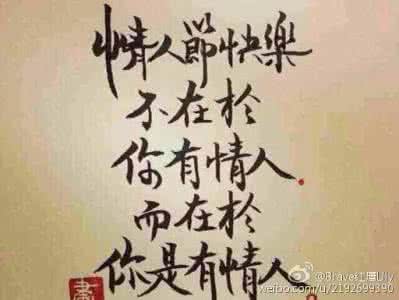 情人節快樂
不在於
你有情人.
而在於
你是有情人
書
@Brave紅厝Lily
weibo.com/u/2192699390